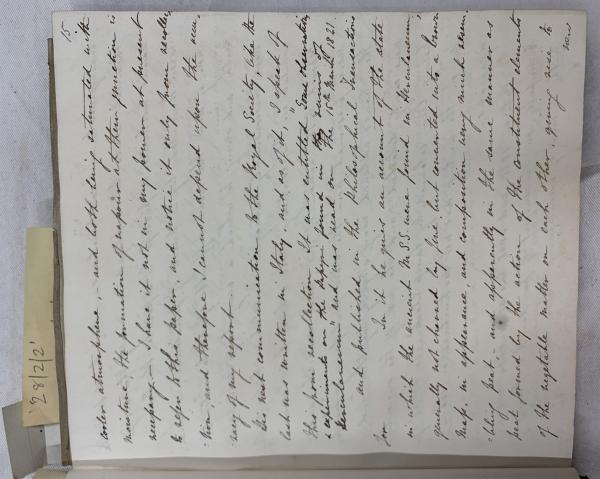 15
cooler atmosphere, and both being saturated with
moisture, the formation of vapour at their junction is
necessary – I have it not in my power at present
to refer to this paper, and notice it only from recollec
tion, and therefore I cannot depend upon the accu
racy of my report.
His next communication to the Royal Society, like the
last was written in Italy, and as of it, I speak of
this from recollection. It was entitled "Some observations
& experiments on the papyri found in the ruins of
Herculaneum" and was read on the 15th March 1821.
and published in the Philosophical Transactions
for In it he gives an account of the state
in which the ancient MSS. were found in Herculaneum,
generally not charred by fire, but converted into a brown
mass, in appearance, and composition very much resem
bling peat – and apparently in the same manner as
peat formed by the action of the constituent elements
of the vegetable matter on each other, giving rise to
'28/2/2'